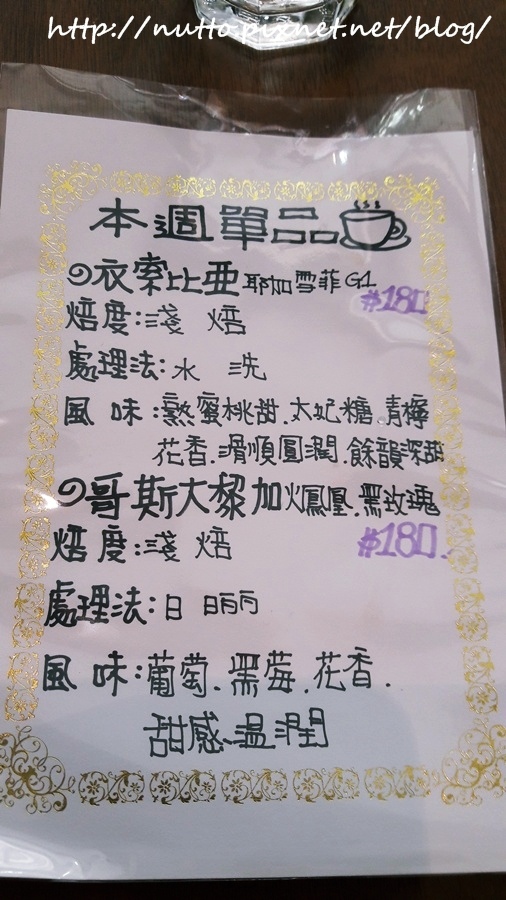 http://nutto.pixnet.net/blog/
本週單品
衣索比亞 耶加雪菲 G1
#180
焙度:淺焙
處理法:水洗
風味:熟蜜桃甜.太妃糖.青檸
花香.滑順圓潤.餘韻深甜
哥斯大黎加 火鳳凰.黑玫瑰
焙度:淺焙
#180.
處理法:日晒
風味:葡萄.黑莓.花香.
甜感溫潤